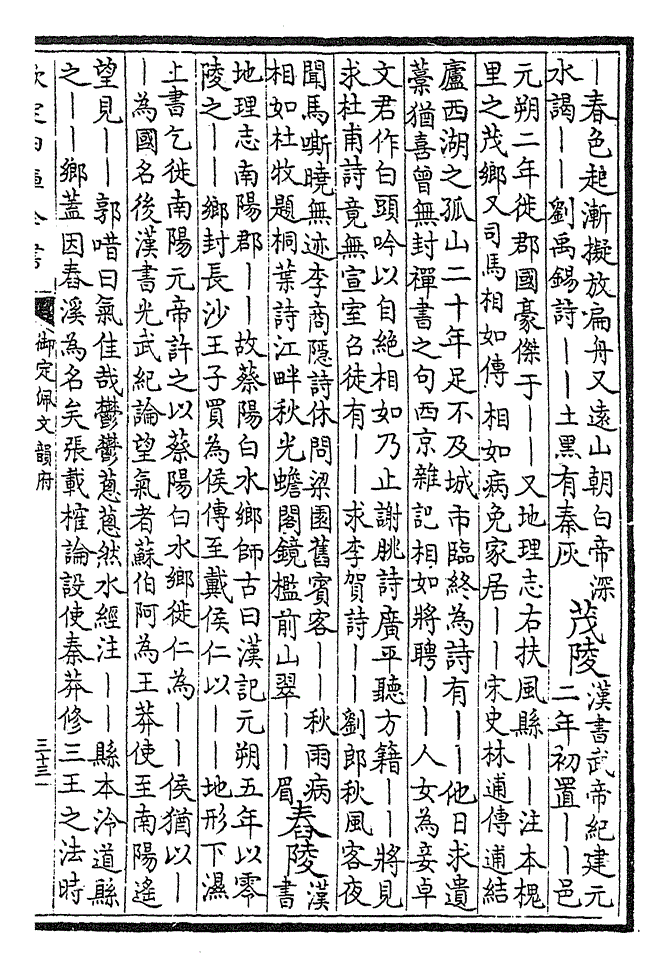 ｜春色趂漸擬放扁舟又遠山朝白帝深
水謁｜｜劉禹錫詩｜｜土黑有秦灰
茂陵
漢書武帝紀建元
二年初置｜｜邑
元朔二年徙郡國豪傑于｜｜又地理志右扶風縣｜｜注本槐
里之茂鄉又司馬相如傳 相如病免家居｜｜宋史林逋傳逋結
廬西湖之孤山二十年足不及城市臨終為詩有｜｜他日求遺
藁猶喜曾無封禪書之句西京雜記相如將聘｜｜人女為妾卓
文君作白頭吟以自絶相如乃止謝朓詩廣平聽方籍｜｜將見
求杜甫詩竟無宣室召徒有｜｜求李賀詩｜｜劉郎秋風客夜
聞馬嘶曉無迹李商隱詩休問梁園舊賓客｜｜秋雨病
相如杜牧題桐葉詩江畔秋光蟾閣鏡檻前山翠｜｜眉
舂陵
漢
書
地理志南陽郡｜｜故蔡陽白水鄉師古曰漢記元朔五年以零
陵之｜｜鄉封長沙王子買為侯傳至戴侯仁以｜｜地形下濕
上書乞徙南陽元帝許之以蔡陽白水鄉徙仁為｜｜侯猶以｜
｜為國名後漢書光武紀論望氣者蘇伯阿為王莽使至南陽遙
望見｜｜郭唶曰氣佳哉鬱鬱蔥蔥然水經注｜｜縣本泠道縣
之｜｜鄉蓋因舂溪為名矣張載榷論設使秦莽修三王之法時
欽定四庫全書
御定佩文韻府
三十三